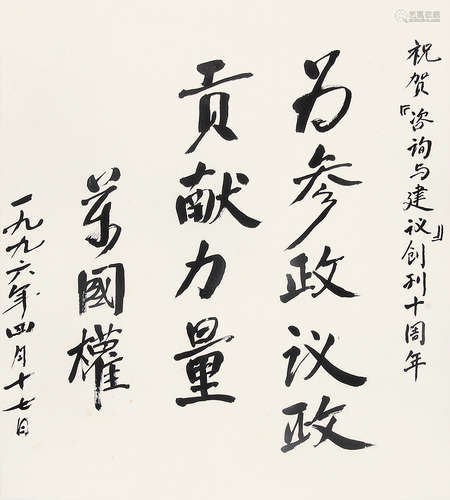 祝贺『咨询与建议』创刊十周年
为参政议政
贡献力量
万國權
一九九六年四月十七日